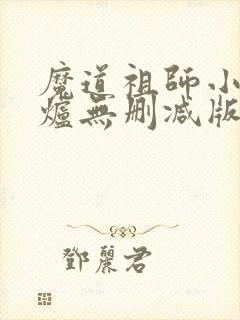 魔道祖師小
爐無刪減版
鄧麗君